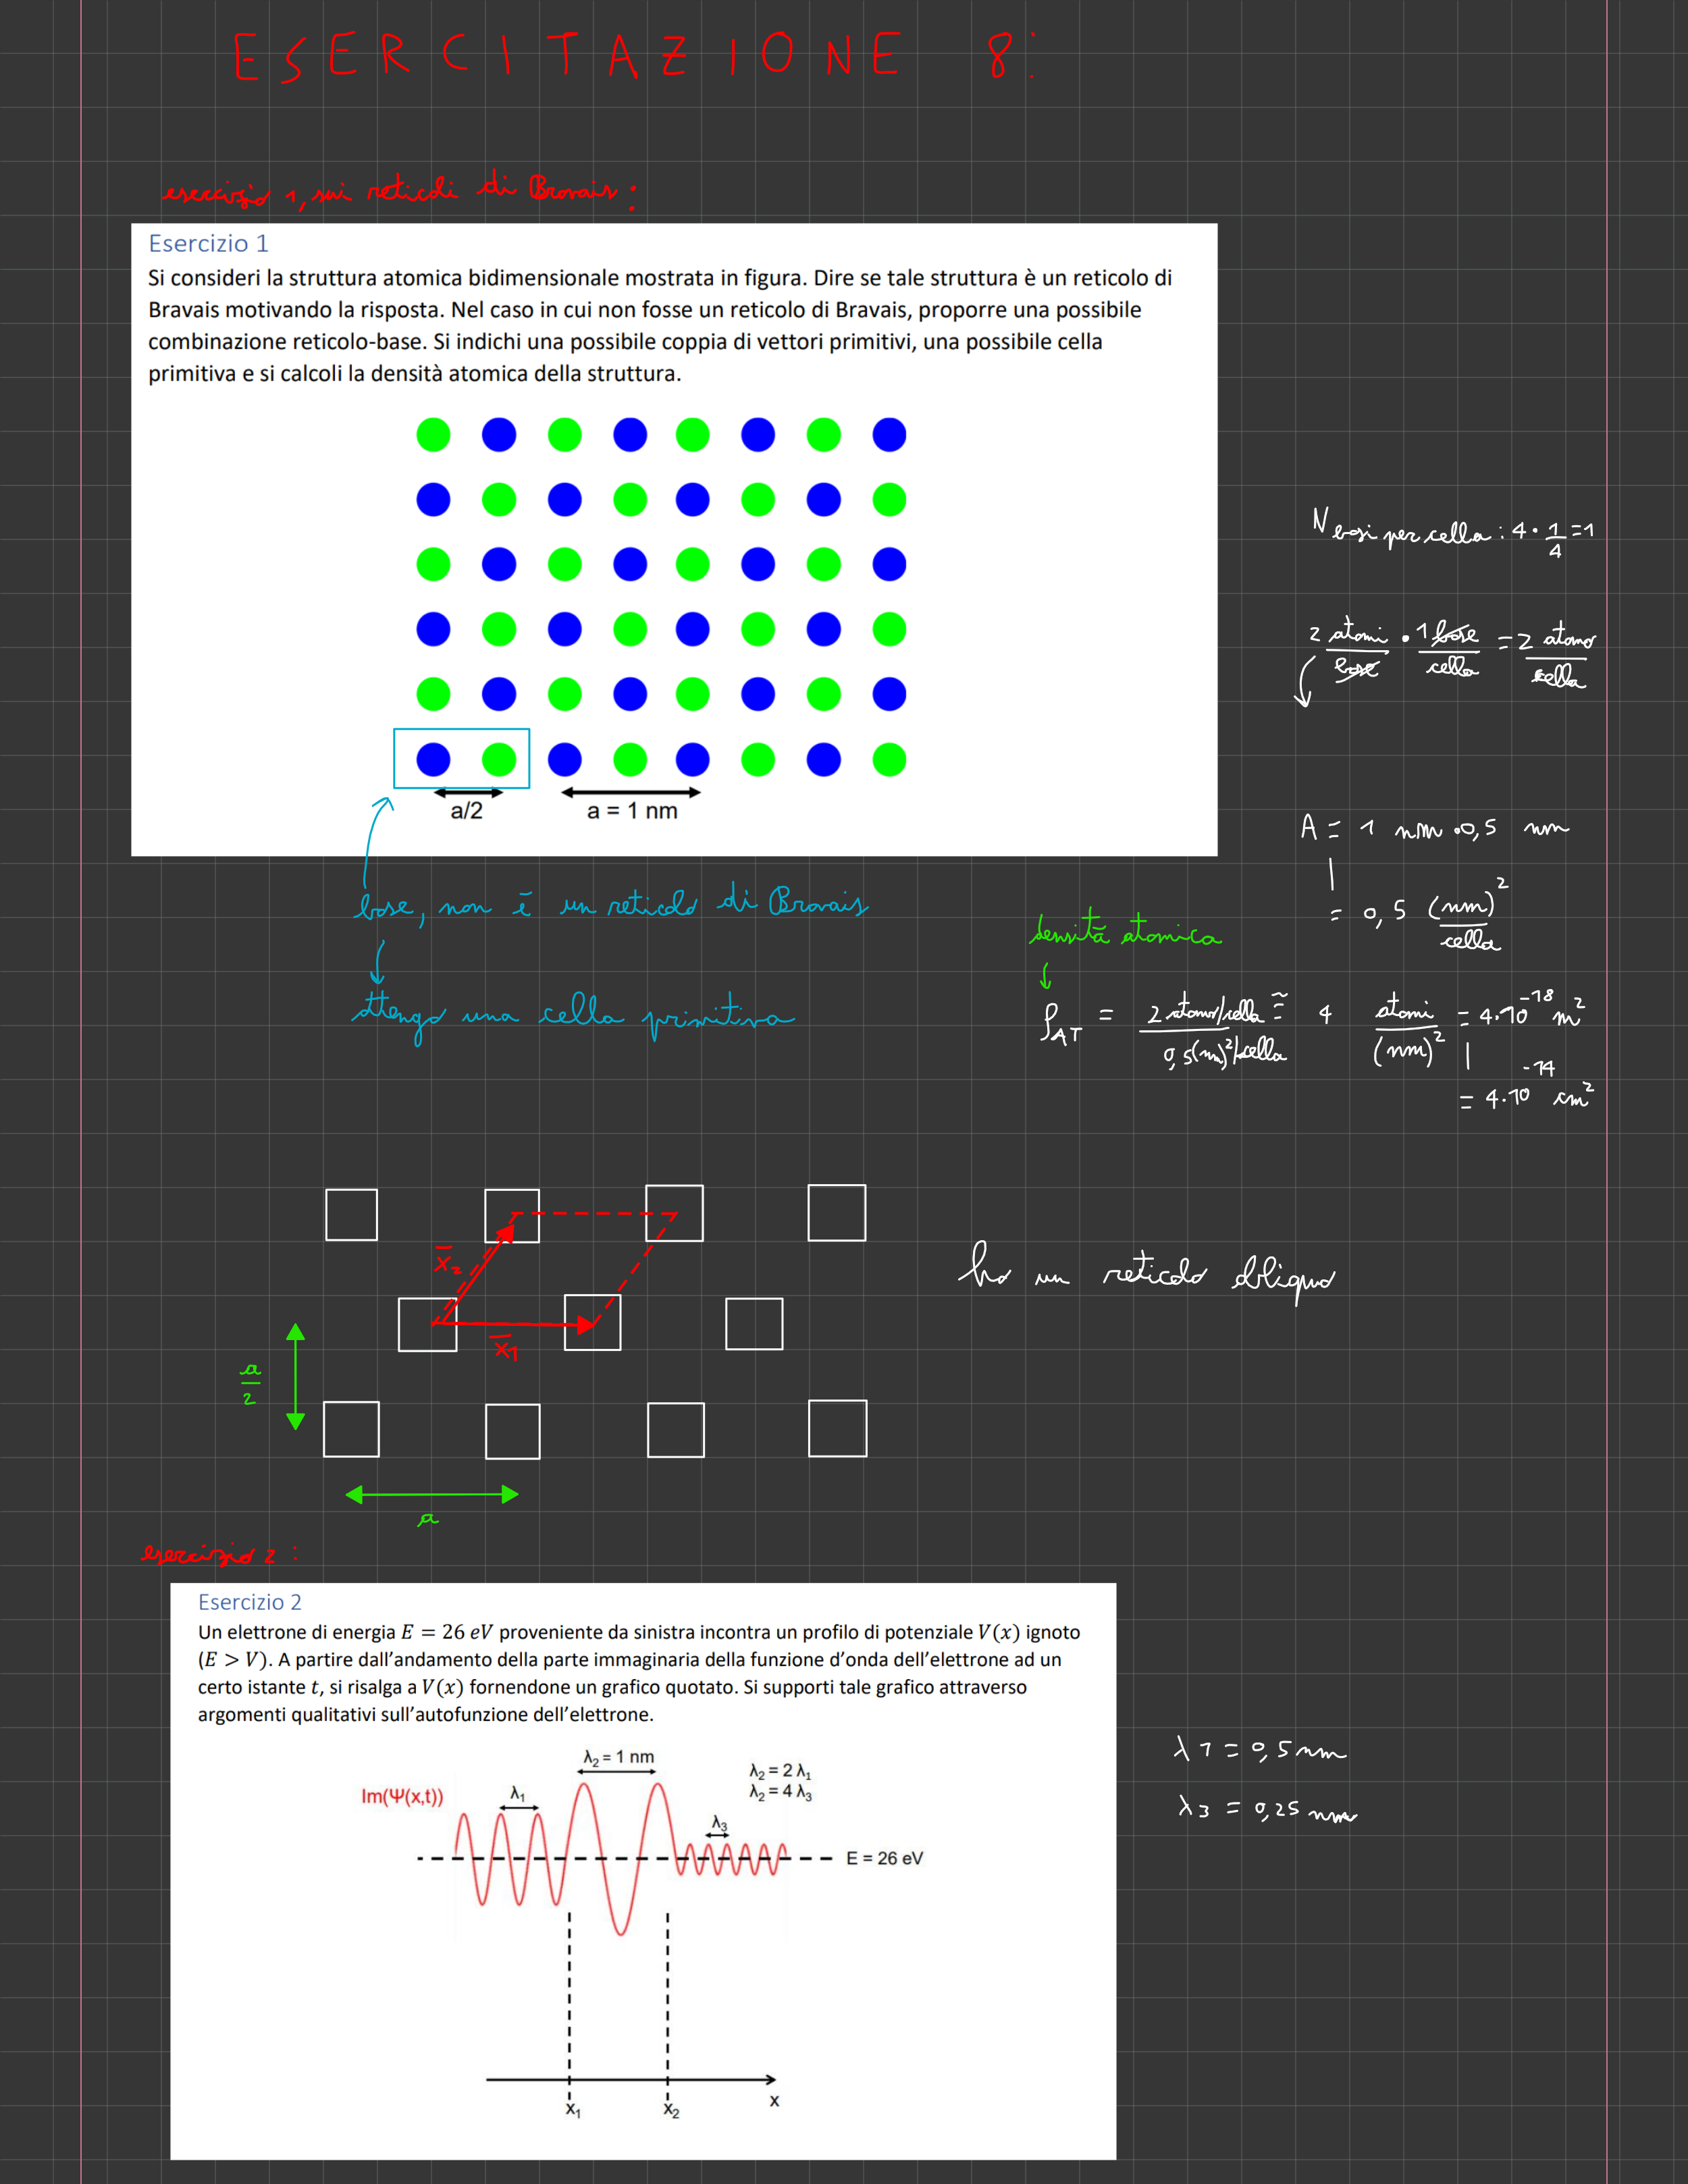 ESERCITAZIONE 8:
esercizio 1, sui reticoli di Bravais:
Esercizio 1
Si consideri la struttura atomica bidimensionale mostrata in figura. Dire se tale struttura è un reticolo di
Bravais motivando la risposta. Nel caso in cui non fosse un reticolo di Bravais, proporre una possibile
combinazione reticolo-base. Si indichi una possibile coppia di vettori primitivi, una possibile cella
primitiva e si calcoli la densità atomica della struttura.
N basi per cella : 4 · 1/4 = 1
2 atomi/base · 1 base/cella = 2 atomo/cella
a/2
a = 1 nm
A = 1 nm · 0,5 nm
= 0,5 (nm)²/cella
base, non è un reticolo di Bravais
ottengo una cella primitiva
densità atomica
ρAT = 2 atomo/cella / 0,5(nm)²/cella = 4 atomi/(nm)² = 4·10⁻¹⁸ m²
= 4·10⁻¹⁴ cm²
x̄₂
x̄₁
ho un reticolo obliquo
a/2
a
esercizio 2 :
Esercizio 2
Un elettrone di energia E = 26 eV proveniente da sinistra incontra un profilo di potenziale V(x) ignoto
(E > V). A partire dall'andamento della parte immaginaria della funzione d'onda dell'elettrone ad un
certo istante t, si risalga a V(x) fornendone un grafico quotato. Si supporti tale grafico attraverso
argomenti qualitativi sull'autofunzione dell'elettrone.
λ₂ = 1 nm
λ₂ = 2 λ₁
λ₂ = 4 λ₃
Im(Ψ(x,t))
λ₁
λ₃
E = 26 eV
x₁
x₂
x
λ1 = 0,5 nm
λ3 = 0,25 nm